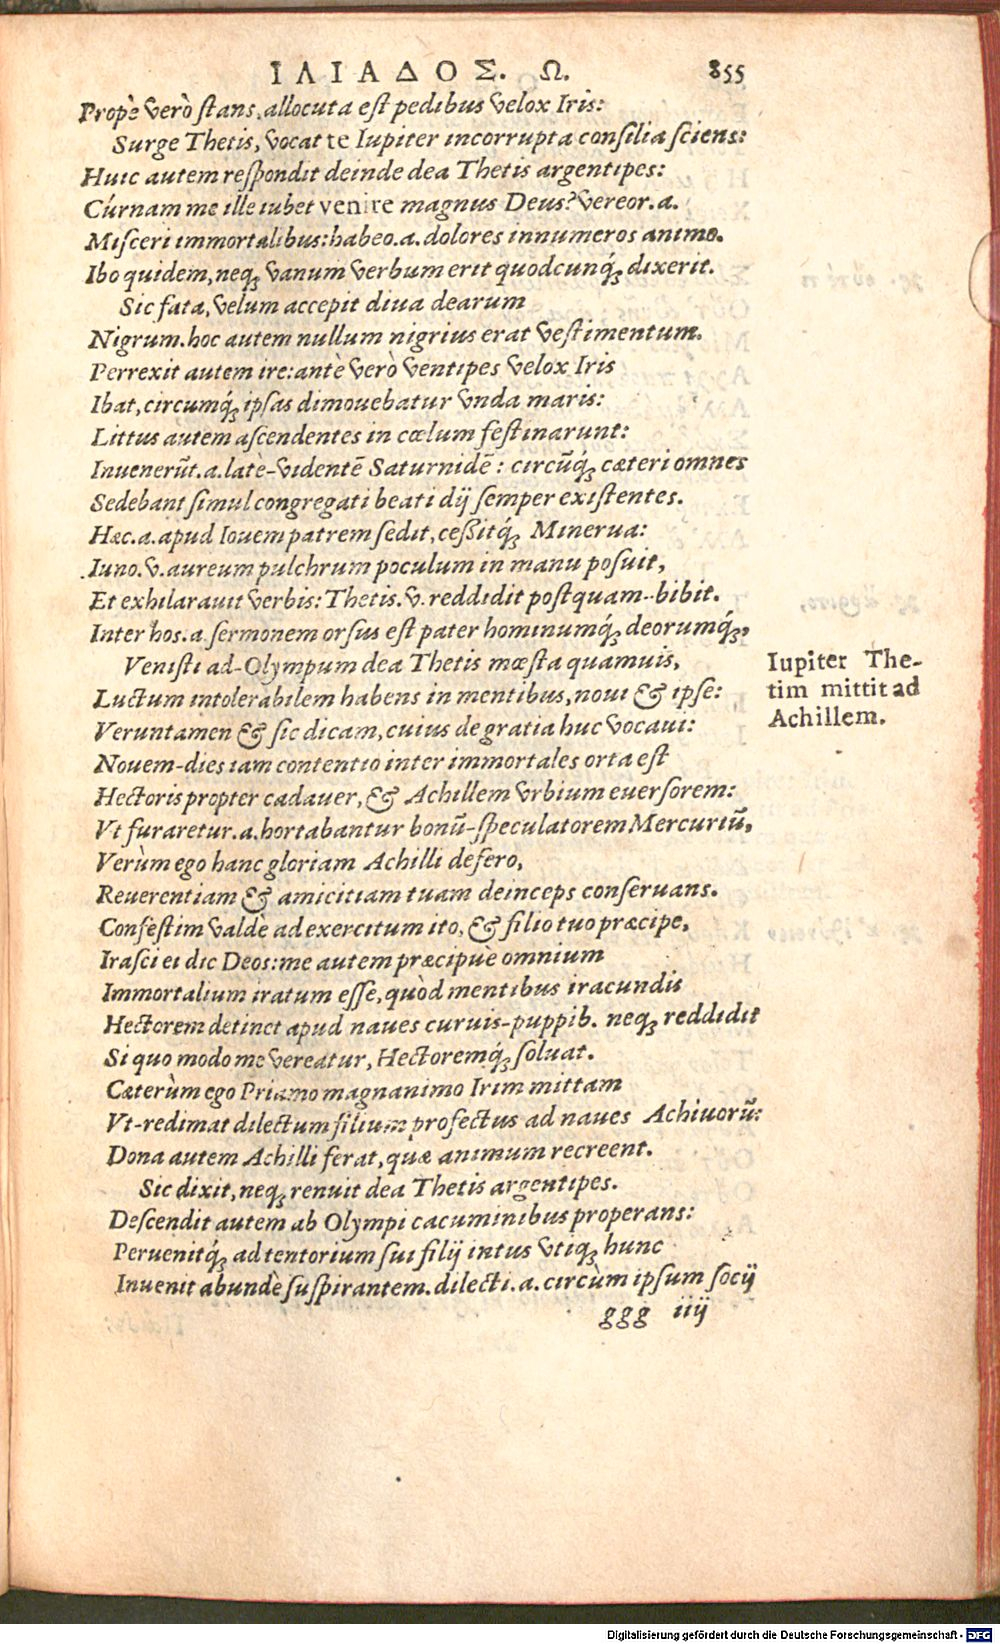 ΙΛΙΑΔΟΣ. Ω. 855
Propè verò ſtans, allocuta eſt pedibus velox Iris:
Surge Thetis, vocat te Iupiter incorrupta conſilia ſciens:
Huic autem reſpondit deinde dea Thetis argentipes:
Cúrnam me ille iubet venire magnus Deus? vereor.a.
Miſceri immortalibus: habeo.a.dolores innumeros animo.
Ibo quidem, neq; vanum verbum erit quodcunq́; dixerit.
Sic fata, velum accepit diua dearum
Nigrum.hoc autem nullum nigrius erat veſtimentum.
Perrexit autem ire: antè verò ventipes velox Iris
Ibat, circumq́; ipſas dimouebatur vnda maris:
Littus autem aſcendentes in cœlum feſtinarunt:
Inuenerūt.a.latè-videntē Saturnidē: circūq́; cæteri omnes
Sedebant ſimul congregati beati dij ſemper exiſtentes.
Hæc.a.apud Iouem patrem ſedit, ceßitq́; Minerua:
Iuno.v.aureum pulchrum poculum in manu poſuit,
Et exhilarauit verbis: Thetis.v.reddidit poſtquam-bibit.
Inter hos.a.ſermonem orſus eſt pater hominumq́; deorumq́;,
Veniſti ad-Olympum dea Thetis mœſta quamuis,
Luctum intolerabilem habens in mentibus, noui & ipſe:
Veruntamen & ſic dicam, cuius de gratia huc vocaui:
Nouem-dies iam contentio inter immortales orta eſt
Hectoris propter cadauer, & Achillem vrbium euerſorem:
Vt furaretur.a.hortabantur bonū-ſpeculatorem Mercuriū,
Verùm ego hanc gloriam Achilli defero,
Reuerentiam & amicitiam tuam deinceps conſeruans.
Confeſtim valdè ad exercitum ito, & filio tuo præcipe,
Iraſci ei dic Deos: me autem præcipuè omnium
Immortalium iratum eſſe, quòd mentibus iracundis
Hectorem detinet apud naues curuis-puppib. neq; reddidit
Si quo modo me vereatur, Hectoremq́; ſoluat.
Cæterùm ego Priamo magnanimo Irim mittam
Vt-redimat dilectum filium profectus ad naues Achiuorū:
Dona autem Achilli ferat, quæ animum recreent.
Sic dixit, neq; renuit dea Thetis argentipes.
Deſcendit autem ab Olympi cacuminibus properans:
Peruenitq́; ad tentorium ſui filij intus vtiq; hunc
Inuenit abundè ſuſpirantem.dilecti.a.circùm ipſum ſocij
ggg iiij
Iupiter The-
tim mittit ad
Achillem.
Digitalisierung gefördert durch die Deutsche Forschungsgemeinschaft - DFG